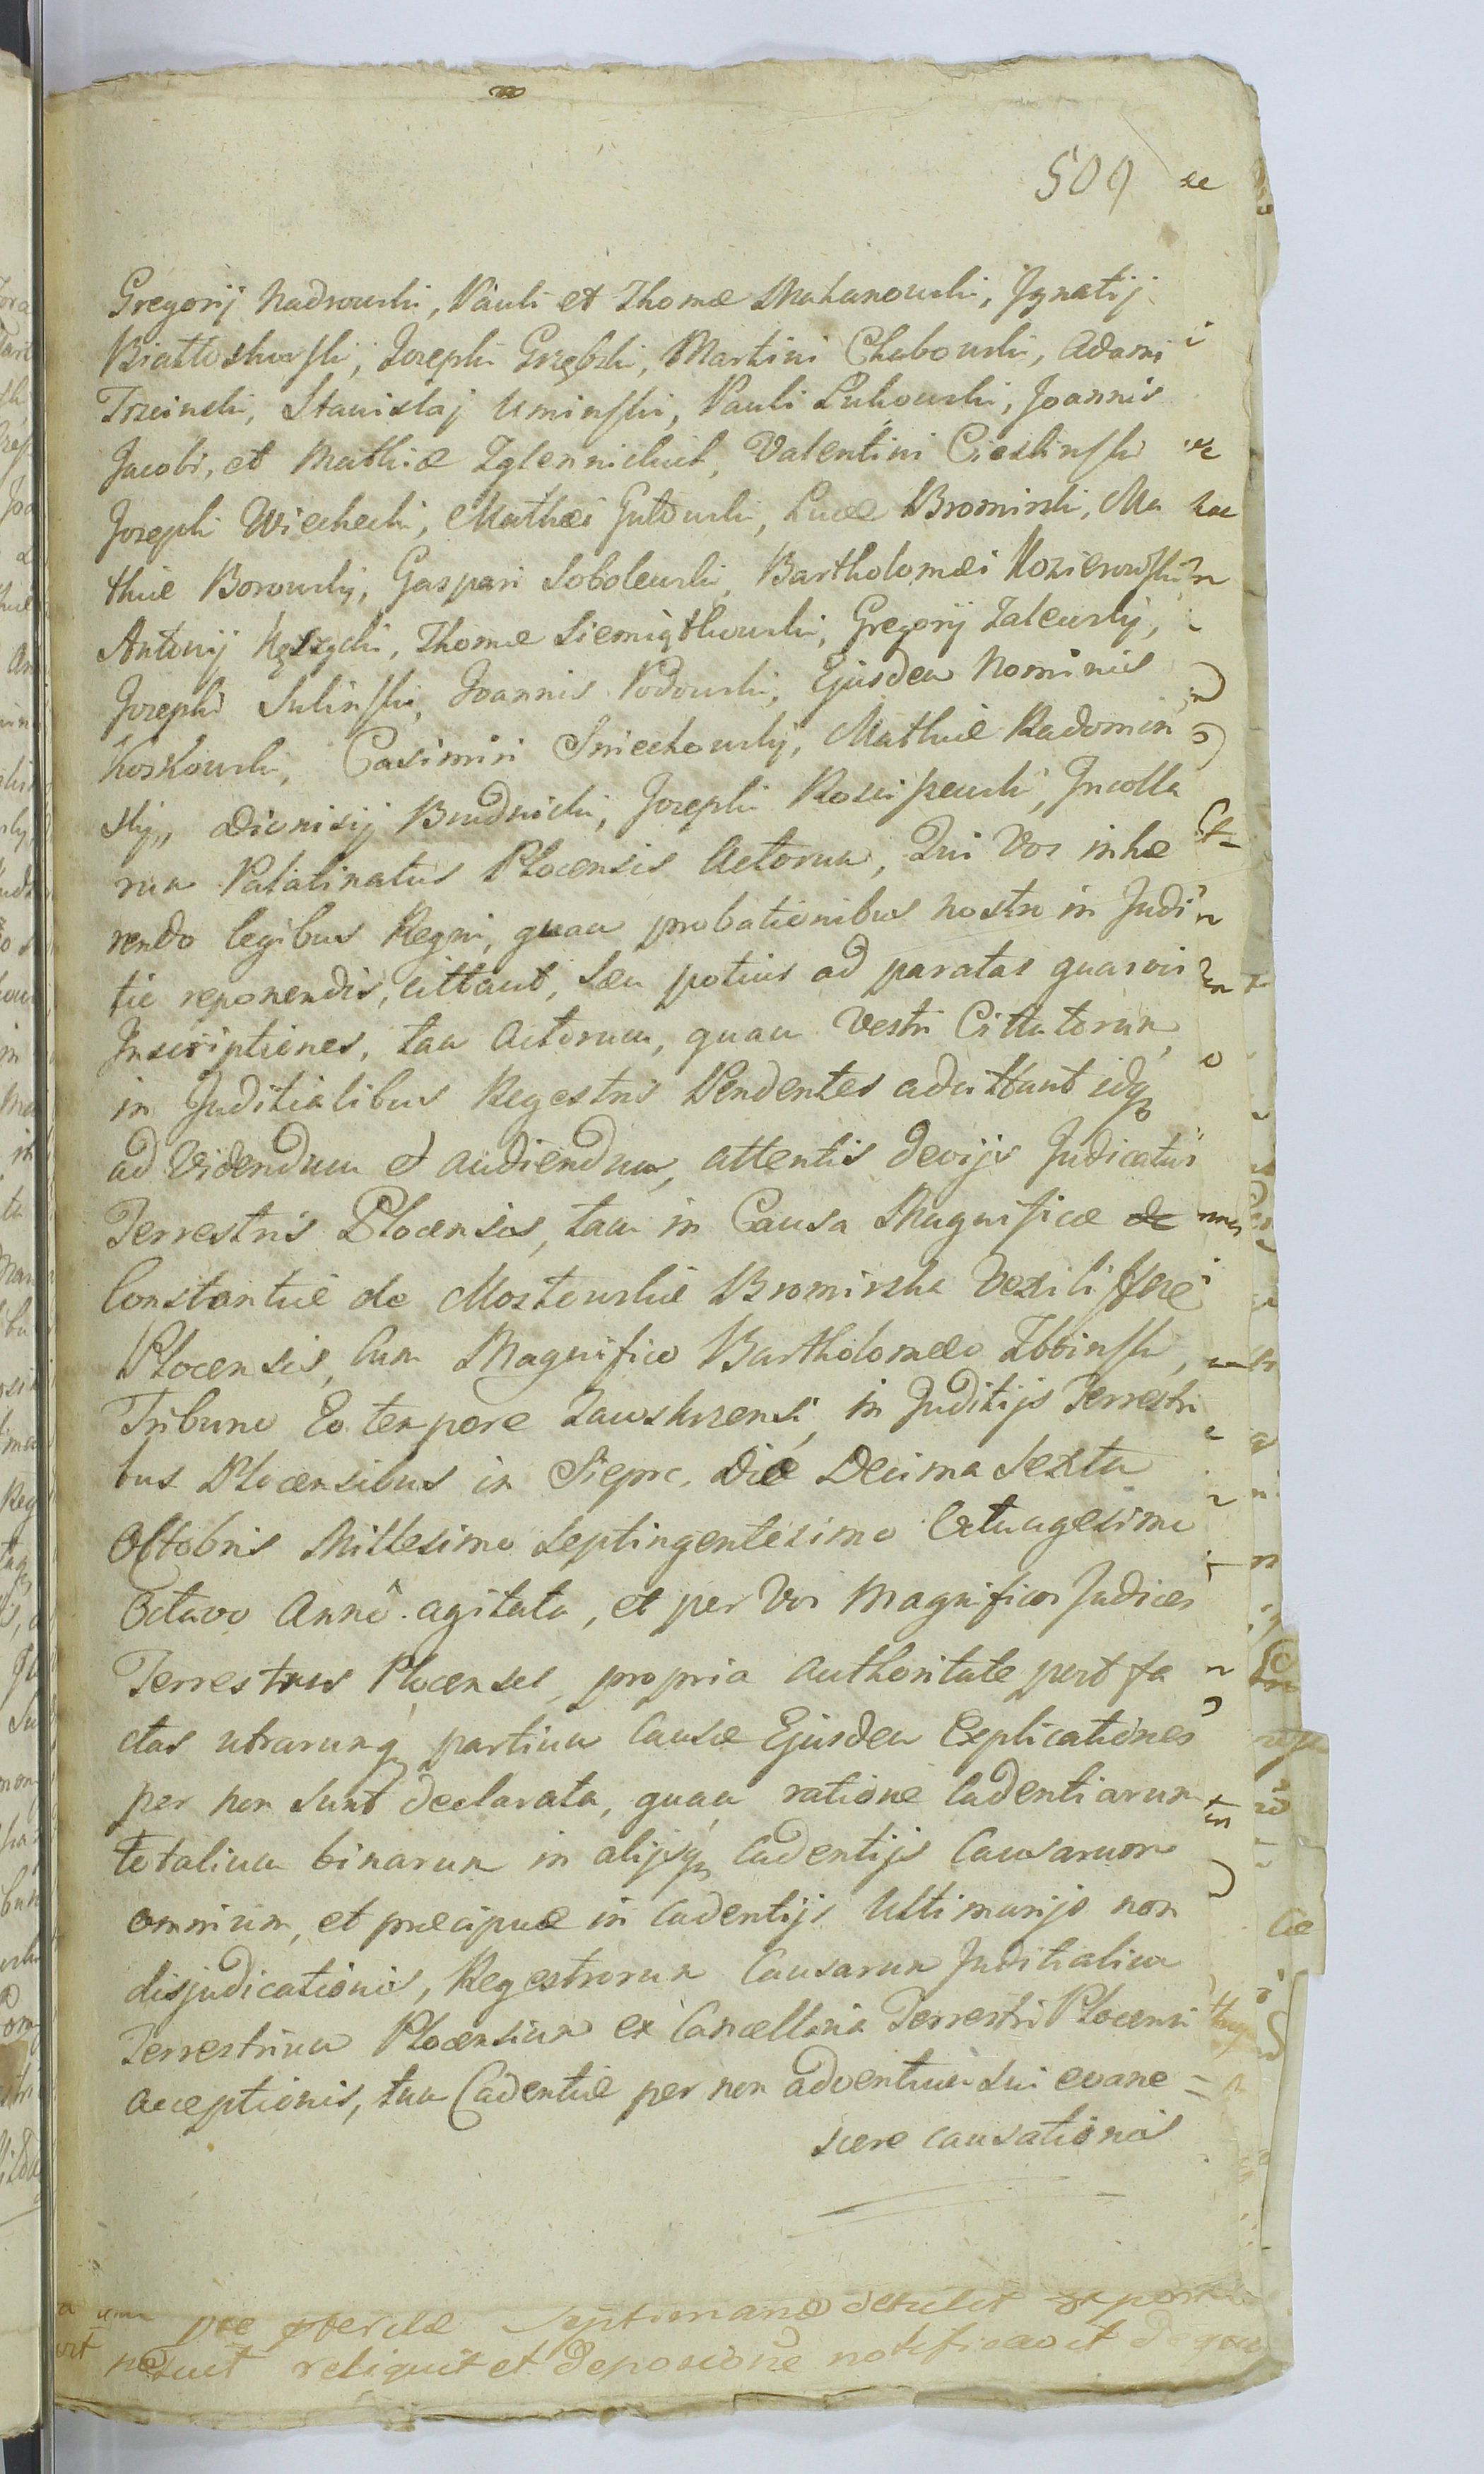 509
Gregorij Nadrowski, Pauli et Thomæ Makanowski, Jgnatij
Białłoskurski, Jozephi Grzębski, Martini Chabowski, Adami
Trzcinski, Stanislaj Uminski, Pauli Lukowski, Joannis
Jacobi, et Mathiæ Zglennickich, Valentini Cieslinski
Jozephi Wiechecki, Mathæi Gutowski, Lucæ Bromirski, Ma
thiæ Borowskij, Gaspari Sobolewski, Bartholomæi Kozierowski
Antonij Kęszycki, Thomæ Siemiątkowski, Gregorij Zalewskij,
Jozephi Sulinski, Joannis Podowski, Ejusdem Nominis
Koskowski, Casimiri Sniechowskij, Mathiæ Radomin
skij, Dionisij Brudnicki, Jozephi Rosciszewski, Incolla
rum Palatinatus Plocensis Actorum, Qui Vos inhæ
rendo legibus Regni, quam probationibus nostro in Judi
tio reponendis, cittant, seu potius ad paratas quasvis
Inscriptiones, tam Actorum, quam Vestri Cittatorum,
in Juditialibus Regestris Pendentes adcittant idq
ad Videndum et audiendum, attentis devijs Judicatus
Terrestris Plocensis, tam in Causa Magnificæ de
Constantiæ de Mostowskie Bromirska Vexilifferæ
Plocensis, cum Magnifico Bartholomæo Zboinski,
Tribuno Eo tempore Zawskrzensi, in Juditijs Terrestri
bus Plocensibus in Sieprc, die Decima Sexta
Octobris Millesimo Septingentesimo Octuagesimo
Octavo Annô agitata, et per Vos Magnificos Judices
Terrestres Plocenses, propria authoritate post fa
ctas utrarunq partium Causæ Ejusdem Explicationes
per non sunt declarata, quam ratione Cadentiarum
totalium binarum in alijsq Cadentijs Causarum
omnium, et præcipue in Cadentijs Ultimarijs non
disjudicationis, Regestrorum Causarum Juditialium
Terrestrium Plocensium ex Cancellaria Terrestri Plocensi
acceptionis, tum Cadentiæ per non adventum sui evane
scere causationis
septimanæ detulit
posuit reliquit et depositione notificavit